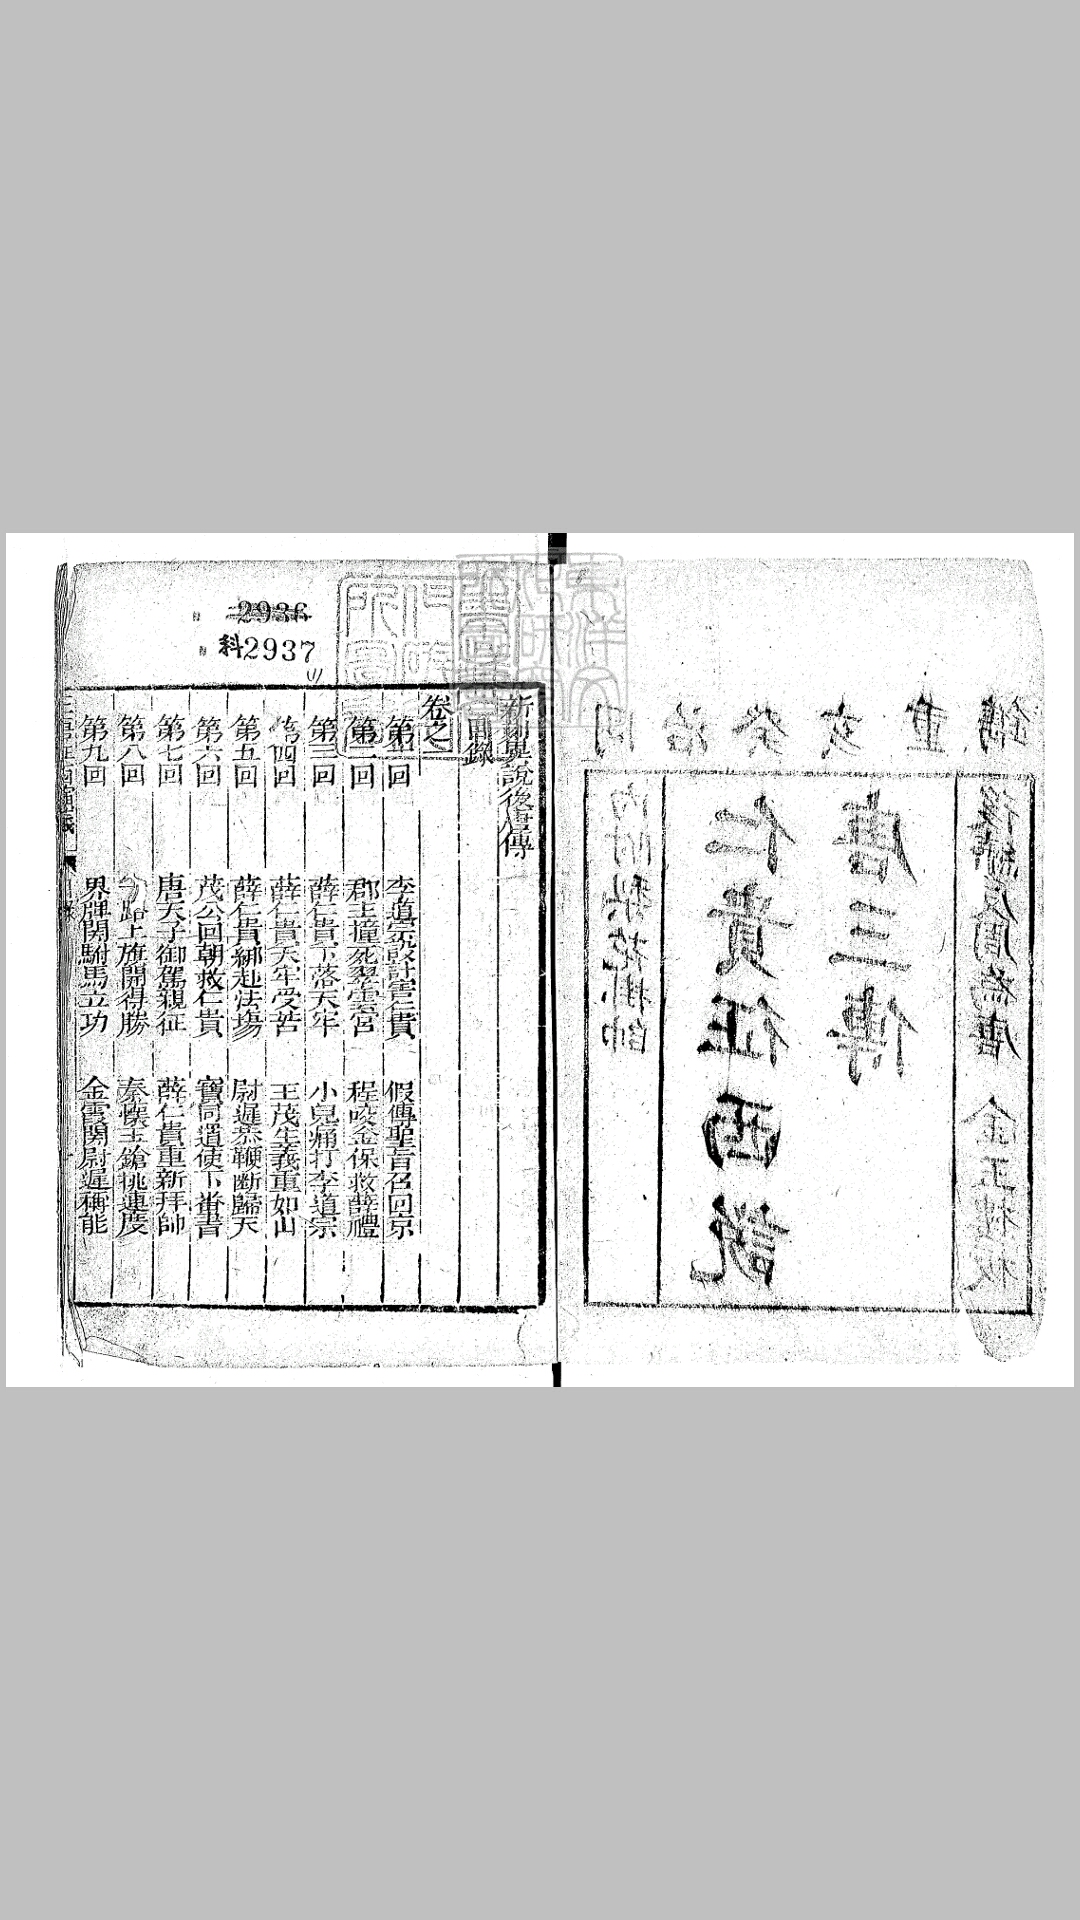 同治癸亥重鐫
內附梨花掛帥
仁貴征西說
唐三傳
後續反周為唐 金玉樓
2936
科2937
新刻異說後唐傳
目錄
卷之一
第一回 李道宗設計害仁貴 假傳聖旨召回京
第二回 郡主撞死翠雲宮 程咬金保救薛禮
第三回 薛仁貴下落天牢 小兒痛打李道宗
第四回 薛仁貴天牢受苦 王茂生義重如山
第五回 薛仁貴綁赴法場 尉遲恭鞭斷歸天
第六回 茂公回朝救仁貴 寶同遣使下番書
第七回 唐天子御駕親征 薛仁貴重新拜帥
第八回 路上旗開得勝 秦懷玉鎗挑連度
第九回 界牌関駙馬立功 金霞関尉遲稱能